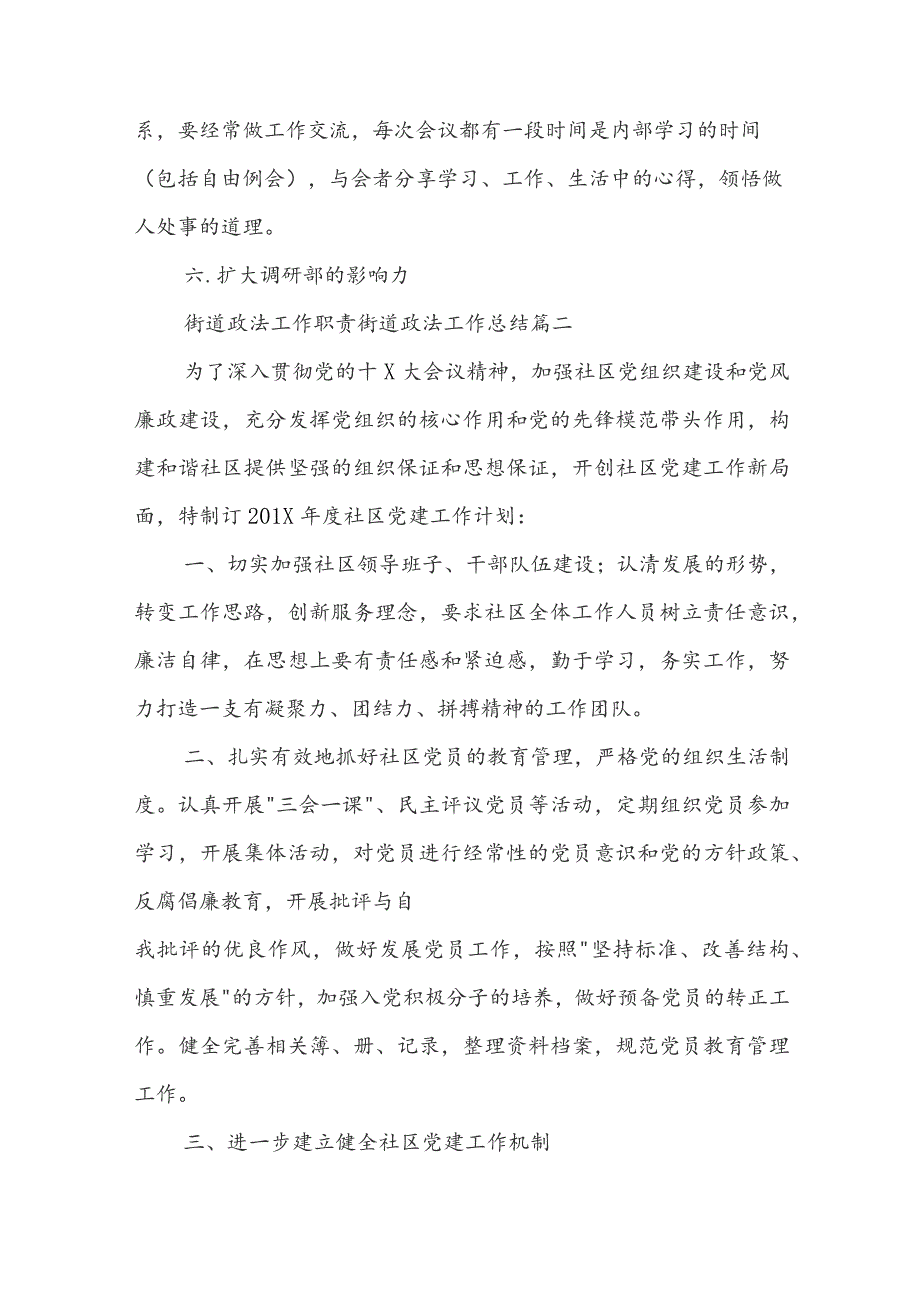 系，要经常做工作交流，每次会议都有一段时间是内部学习的时间
（包括自由例会），与会者分享学习、工作、生活中的心得，领悟做
人处事的道理。
六.扩大调研部的影响力
街道政法工作职责街道政法工作总结篇二
为了深入贯彻党的十X大会议精神，加强社区党组织建设和党风
廉政建设，充分发挥党组织的核心作用和党的先锋模范带头作用，构
建和谐社区提供坚强的组织保证和思想保证，开创社区党建工作新局
面，特制订201X年度社区党建工作计划：
一、切实加强社区领导班子、干部队伍建设；认清发展的形势，
转变工作思路，创新服务理念，要求社区全体工作人员树立责任意识，
廉洁自律，在思想上要有责任感和紧迫感，勤于学习，务实工作，努
力打造一支有凝聚力、团结力、拼搏精神的工作团队。
二、扎实有效地抓好社区党员的教育管理，严格党的组织生活制
度。认真开展"三会一课"、民主评议党员等活动，定期组织党员参加
学习，开展集体活动，对党员进行经常性的党员意识和党的方针政策、
反腐倡廉教育，开展批评与自
我批评的优良作风，做好发展党员工作，按照"坚持标准、改善结构、
慎重发展"的方针，加强入党积极分子的培养，做好预备党员的转正工
作。健全完善相关簿、册、记录，整理资料档案，规范党员教育管理
工作。
三、进一步建立健全社区党建工作机制